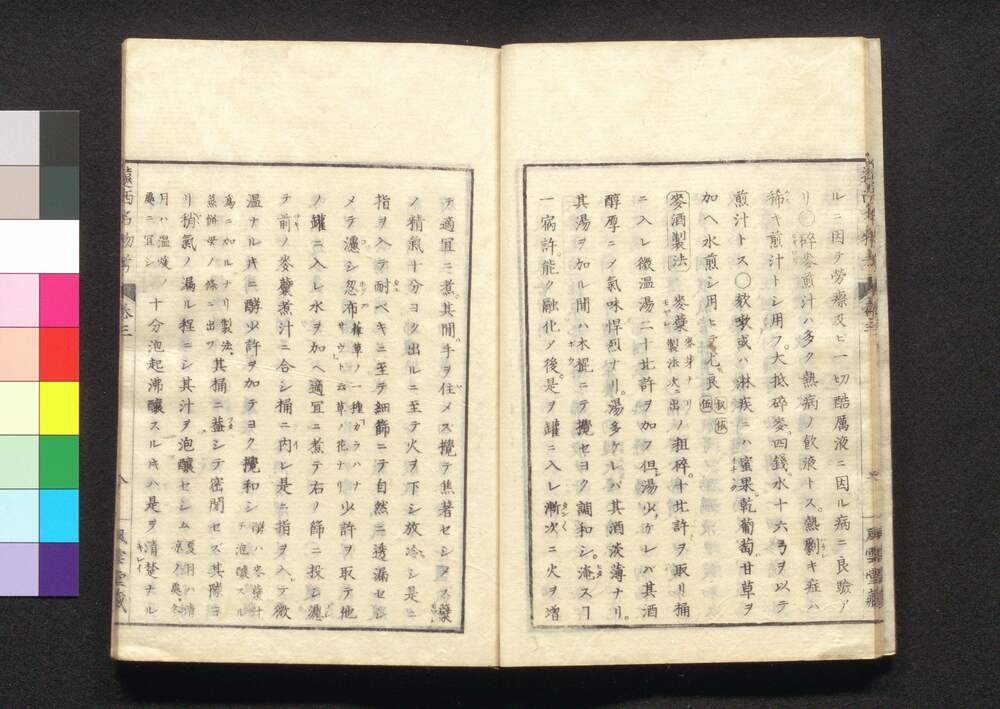 ルニ因テ労療及ヒ一切酷厲液ニ因ル病ニ良驗ア
リ〇碎麥煎汁ハ多ク熱病ノ飲液トス。熱劇キ症ハ
稀キ煎汁トシ用フ。大抵碎麥四錢。水十六弓ヲ以テ
煎汁トス〇欬嗽或ハ淋疾ニハ蜜果乾葡萄甘草ヲ
加ヘ水煎シ用ヒテ尤良
麥酒製法 麥蘖 麥芽ナリ製法次ニ出ノ粗碎。十比許ヲ取リ桶
ニ入レ微温湯二十比許ヲ加フ但湯少ケレバ其酒
醇厚ニノ氣味悍烈ナリ。湯多ケレバ其酒淡薄ナリ。
其湯ヲ加ル間ハ木棍ニテ攪セヨク調和シ。淹スヿ
一宿許。能ク融化ノ後是ヲ罐ニ入レ漸次ニ火ヲ増
テ適宜ニ煮。其間。手ヲ住メス攪テ焦著セシメス蘖
ノ精氣十分ヨク出ルニ至テ火ヲ下シ放冷シ是ニ
指ヲ入テ耐ベキニ至テ細篩ニテ自然ニ透漏セシ
メテ濾シ忽布 蔓草ノ一種カラハナサウト云草ノ花ナリ 少許ヲ取テ他
ノ罐ニ入レ水ヲ加ヘ適宜ニ煮テ右ノ篩ニ投シ濾
テ前ノ麥蘖煮汁ニ合シ桶ニ内レ是ニ指ヲ入テ微
温ナルキニ酵少許ヲ加テヨク攪和シ
爲ニ加ルナリ製法。其桶ニ蓋シテ密閉セズ其隙ヨ
リ稍氣ノ漏ル程ニシ其汁ヲ泡釀セシム
月ハ温煖ノ處ニ宜シ 十分泡起沸釀スルキハ是ヲ清楚ナル
卷三
八